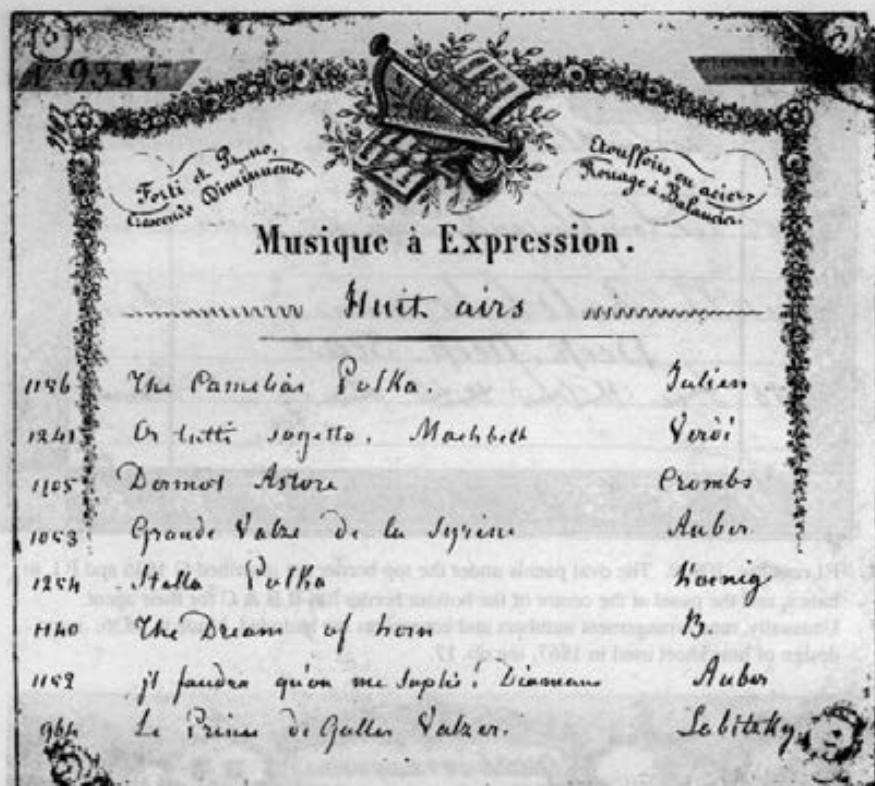 Nº 9385
Forti et Piano,
Crescendo Diminuento
Etouffoirs en acier
Rouage à Balancier.
Musique à Expression.
Huit airs
1186 The Camelias Polka. Julien
1241 Or tutti sorgette. Machbeth Verdi
1105 Dermot Astore Crombs
1053 Grande Valze de la Syrène Auber
1254 Stella Polka Koenig
1140 The Dream of horn B.
1152 il faudra qu'on me Diamans Auber
964 Le Prince de Galles Valzer. Labitzky